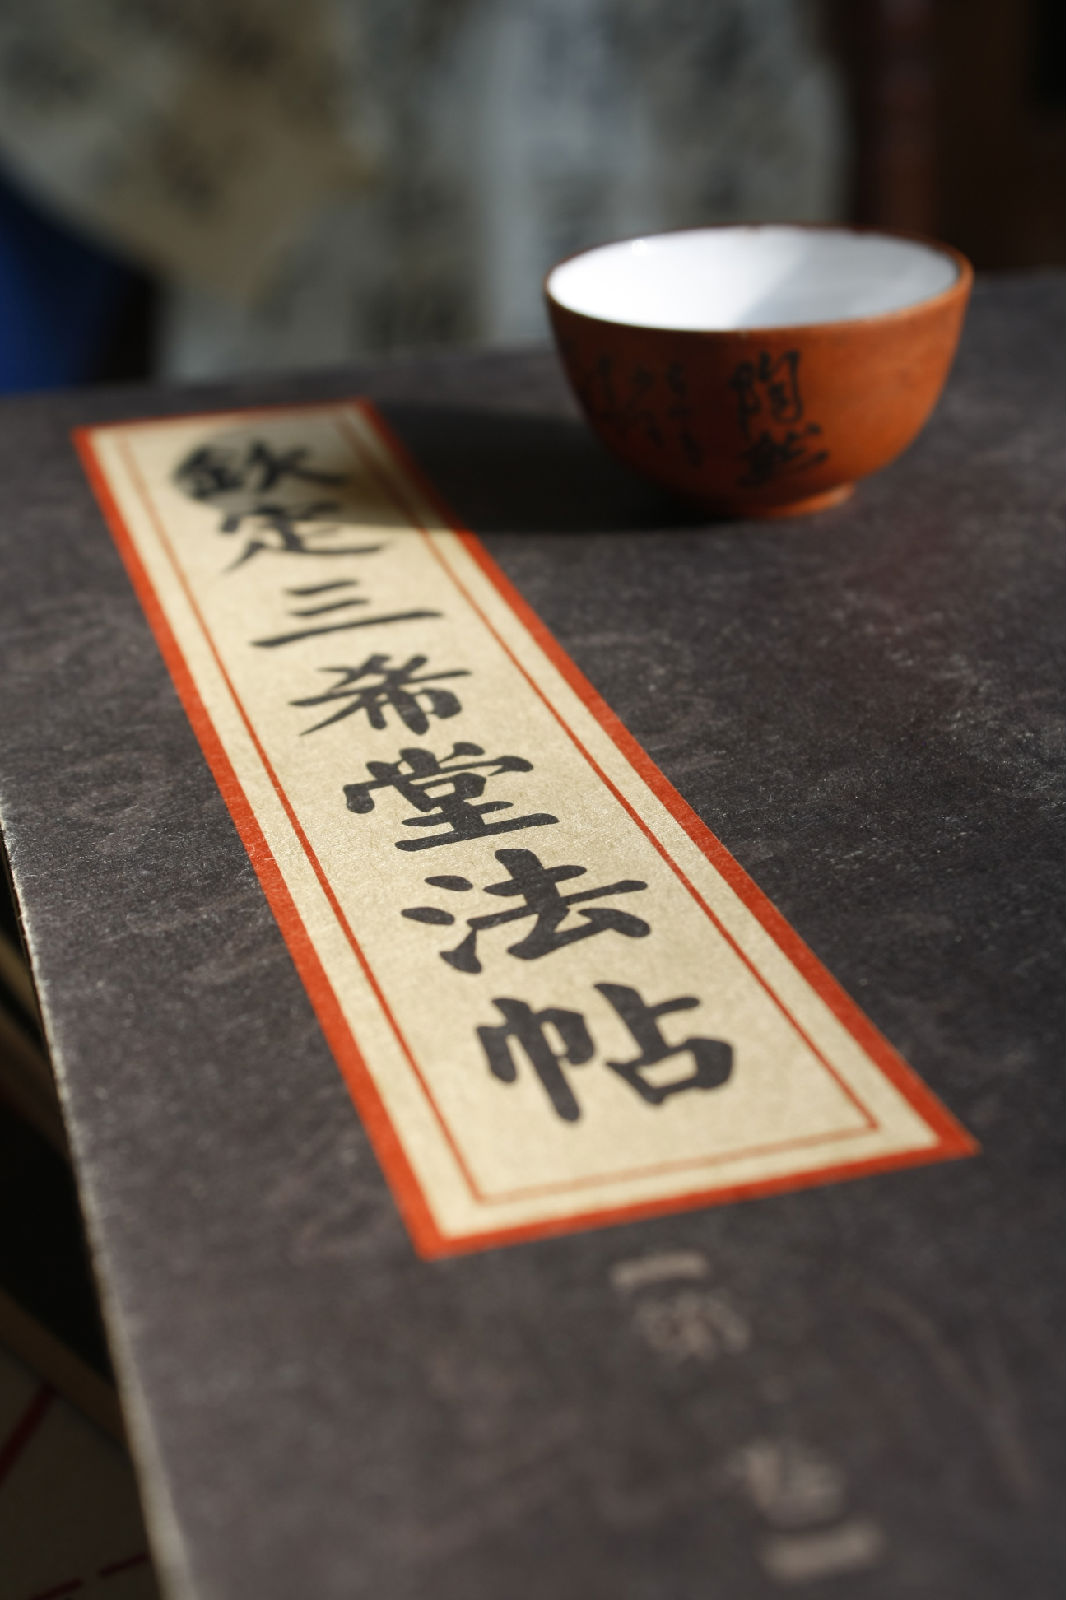 欽定三希堂法帖
陶然